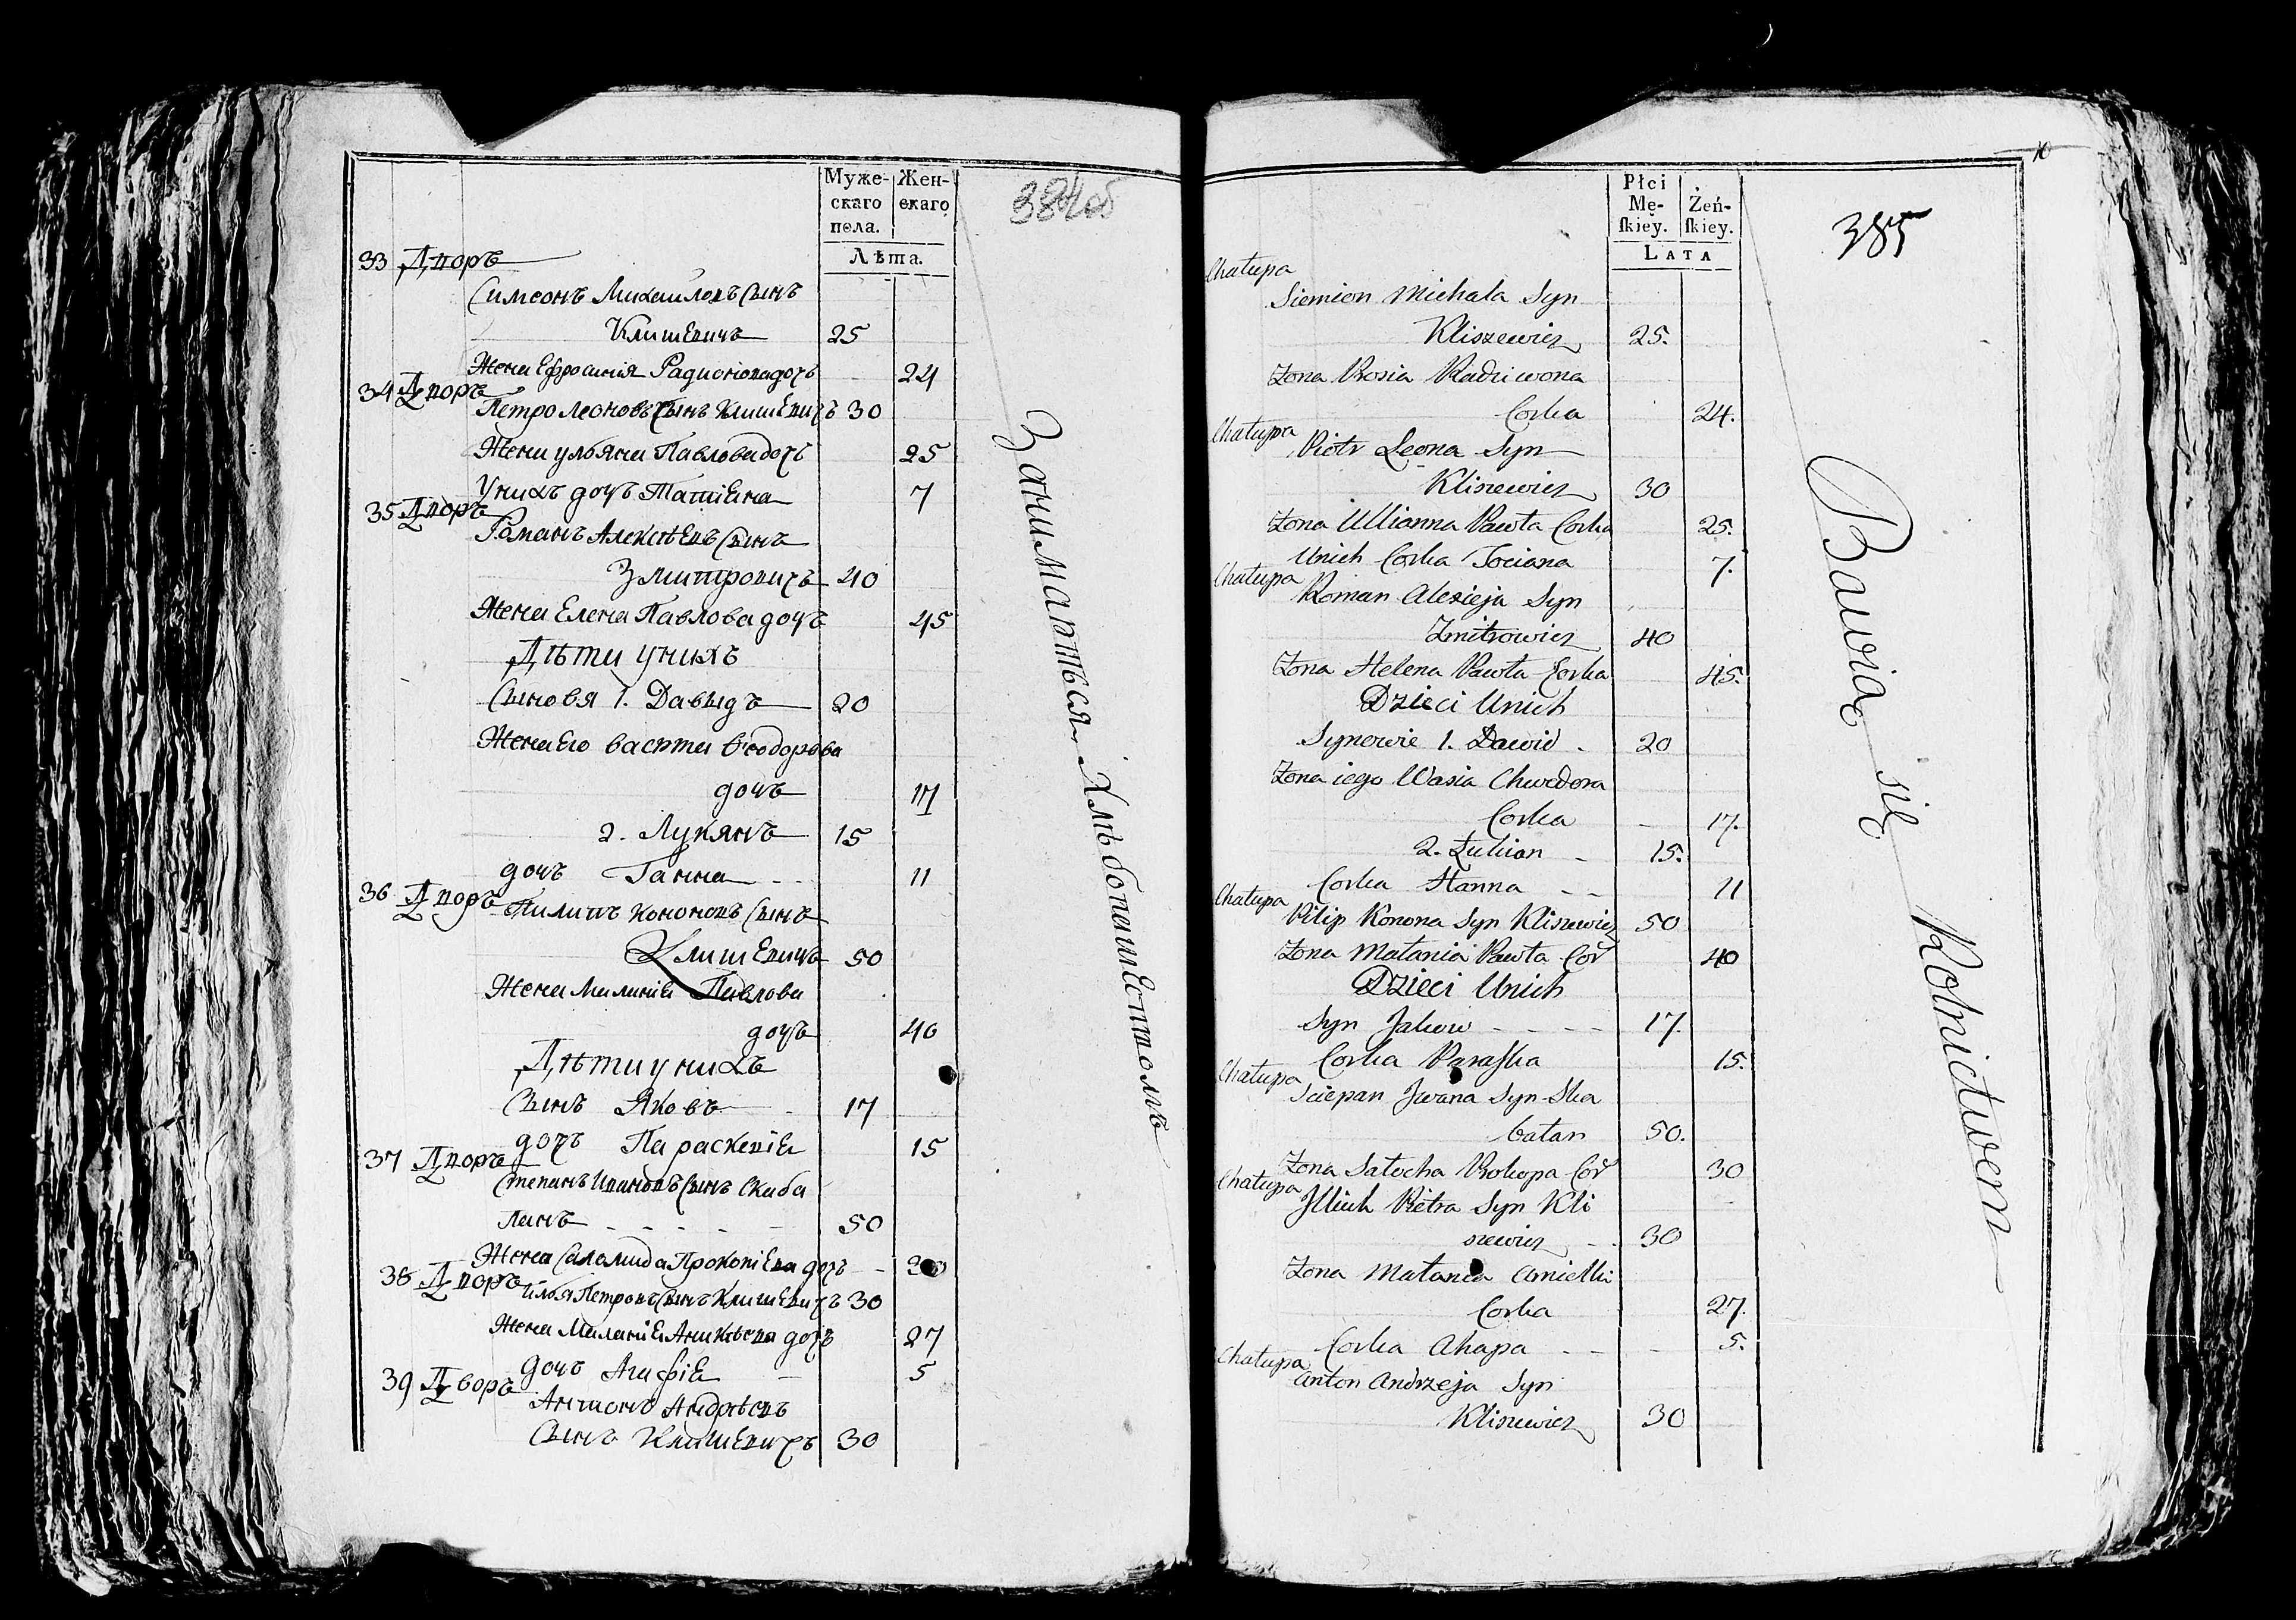 Муже-
скаго
пола.
Жен-
скаго
Лѣта.
384об
33 Дворъ
Симеонъ Михаиловъ Сынъ
Клишевичъ 25
Жена Ефросиния Радионова дочь 24
34 Дворъ
Петро Леоновъ Сынъ Клишевичъ 30
Жена ульяна Павлова дочь 25
Унихъ дочъ Татиена 7
35 Дворъ
Романъ Алексѣевъ Сынъ
Змитровичъ 40
Жена Елена Павлова дочъ 45
Дѣти унихъ
Сыновя 1. Давыдъ 20
Жена Его васта Ѳеодорова
дочъ 17
2. Лукянъ 15
дочъ Ганна - - 11
36 Дворъ
Пилипъ Кононовъ Сынъ
Клишевичъ 50
Жена Маланiя Павлова
дочъ 40
Дѣти унихъ
Сынъ Яковъ 17
дочъ Параскевiя 15
37 Дворъ
Степанъ Ивановъ Сынъ Скаба
ланъ - - - - - 50
Жена Саламида Прокопiева дочъ - 30
38 Дворъ
Илья Петровъ Сынъ Клишевичъ 30
Жена Маланiя Аникѣева дочъ 27
дочъ Агафiя - 5
39 Дворъ
Антонъ Андрѣевъ
Сынъ Клишевичъ 30
Занимаются Хлѣбопашествомъ
10
Płci
Mę-
skiey.
Żeń-
skiey.
LATA
385
Chałupa
Siemion Michała Syn
Kliszewicz 25.
Żona Prosia Radziwona
Corka 24.
Chałupa
Piotr Leona Syn
Kliszewicz 30
Żona Ullianna Pawła Corka 25.
Unich Corka Tociana 7.
Chałupa
Roman Alexieja Syn
Zmitrowicz 40
Żona Helena Pawła Corka 45.
Dzieci Unich
Synowie 1. Dawid - 20
Żona iego Wasia Chwedora
Corka - 17.
2. Łukian - 15.
Corka Hanna - - 11
Chałupa
Pilip Konona Syn Kliszewicz 50
Żona Małania Pawła Cor 40
Dzieci Unich
Syn Jakow - - - - 17.
Corka Paraska 15.
Chałupa
Sciepan Jwana Syn Ska
bałan 50.
Żona Sałocha Prokopa Cor 30
Chałupa
Jlliuk Pietra Syn Kli
szewicz - - 30
Żona Małania Amiełki
Corka 27.
Corka Ahapa - - - 5.
Chałupa
Anton Andrzeja Syn
Kliszewicz 30
Bawią się Rolnictwem